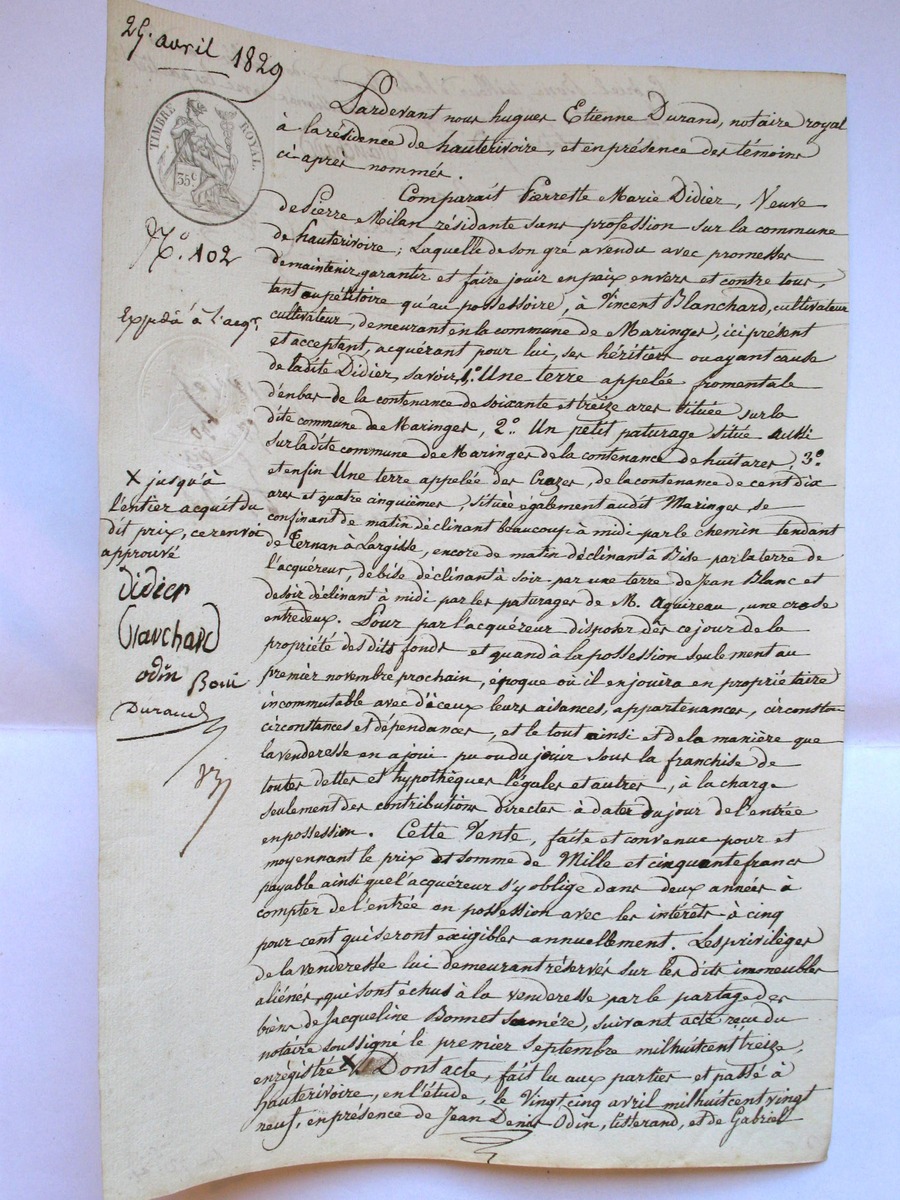 25. avril 1829
TIMBRE ROYAL
35c
N.o 102
Expédié à l'acqr.
Pardevant nous hugues Etienne Durand, notaire royal
à la résidence de hauterivoire, et en présence des témoins
ci après nommés.
Comparait Pierrette Marie Didier, Veuve
de Pierre Milan résidante sans profession sur la commune
de hauterivoire; Laquelle de son gré a vendu avec promesses
de maintenir, garantir et faire jouir en paix envers et contre tous,
tant au pétitoire qu'au possessoire, à Vincent Blanchard, cultivateur
cultivateur, demeurant en la commune de Maringes, ici présent
et acceptant, acquérant pour lui, ses héritiers ou ayant cause
de ladite Didier, savoir, 1.o Une terre appelée fromentale
d'en bas de la contenance de soixante et treize ares située sur la
dite commune de Maringes, 2.o Un petit paturage situé aussi
sur la dite commune de Maringes de la contenance de huit ares, 3.o
et enfin Une terre appelée des Crazes, de la contenance de cent dix
ares et quatre cinquièmes, située également audit Maringes, se
confinant de matin déclinant beaucoup à midi par le chemin tendant
de Ternan à Largisse, encore de matin déclinant à Bise par la terre de
l'acquéreur, de bise déclinant à soir par une terre de Jean Blanc et
de soir déclinant à midi par les paturages de M. Aguireau, une crose
entredeux. Pour par l'acquéreur disposer dès ce jour de la
propriété des dits fonds et quand à la possession seulement au
premier novembre prochain, époque où il en jouira en propriétaire
incommutable avec d'iceux leurs aisances, appartenances, circonstan
circonstances et dépendances, et le tout ainsi et de la manière que
la venderesse en a joui pu ou du jouir sous la franchise de
toutes dettes et hypothèques légales et autres, à la charge
seulement des contributions directes à dater du jour de l'entrée
en possession. Cette Vente, faite et convenue pour et
moyennant le prix et somme de Mille et cinquante francs
payable ainsi que l'acquéreur s'y oblige dans deux années à
compter de l'entrée en possession avec les intérêts à cinq
pour cent qui seront exigibles annuellement. Les privilèges
de la venderesse lui demeurant réservés sur les dits immeubles
aliénés, qui sont échus à la venderesse par le partage des
biens de Jacqueline Bonnet sa mére, suivant acte reçu du
notaire soussigné le premier septembre mil huit cent treize,
enrégistré X Dont acte, fait lu aux parties et passé à
hauterivoire, en l'étude, le Vingt cinq avril mil huit cent vingt
neuf, en présence de Jean Denis Odin, tisserand, et de Gabriel
X jusqu'à
l'entier acquit du
dit prix, ce renvoi
approuvé
Didier
Blanchard
odin
Durand